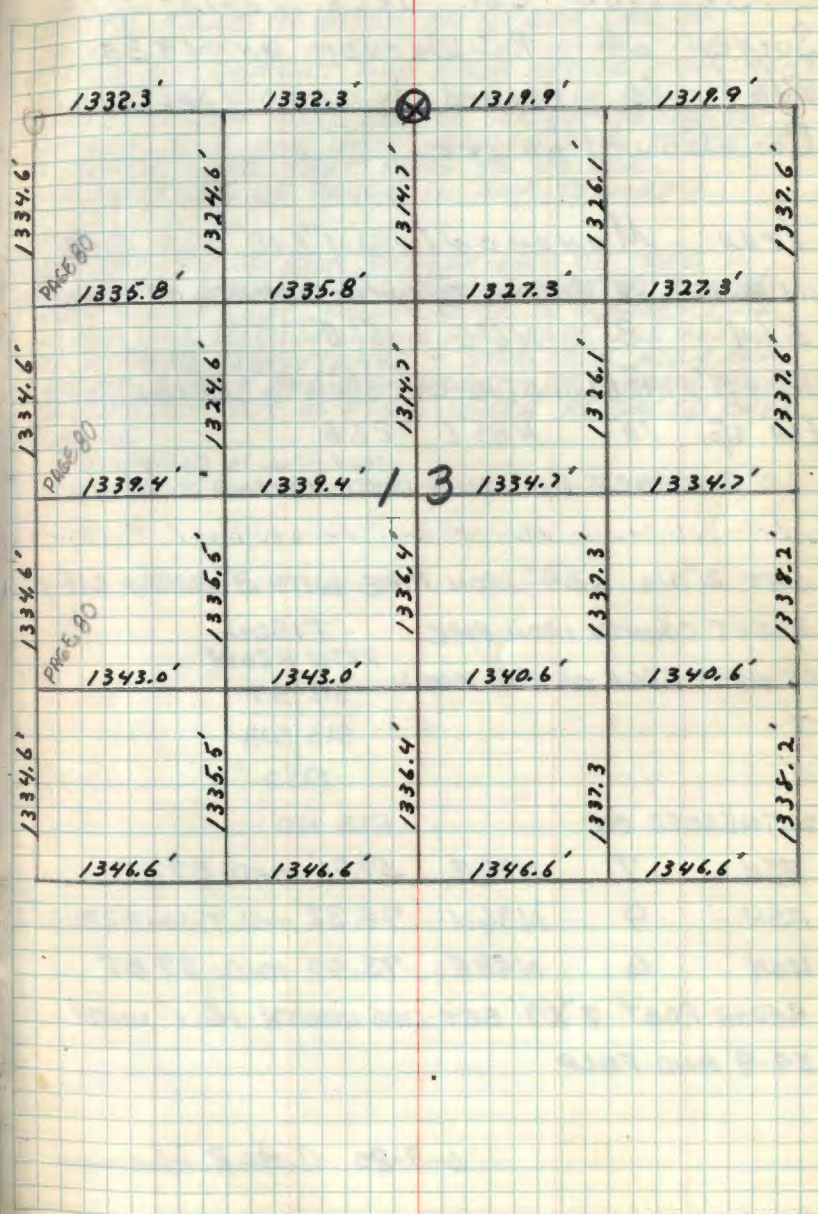 1332.3' 1332.3' 1319.9' 1319.9'
1334.6' 1324.6' 1314.7' 1326.1' 1337.6'
PAGE 80
1335.8' 1335.8' 1327.3' 1327.3'
1334.6' 1324.6' 1314.7' 1326.1' 1337.6'
PAGE 80
1339.4' 1339.4' 13 1334.7' 1334.7'
1334.6' 1335.5' 1336.4' 1337.3' 1338.2'
PAGE 80
1343.0' 1343.0' 1340.6' 1340.6'
1334.6' 1335.5' 1336.4' 1337.3 1338.2'
1346.6' 1346.6' 1346.6' 1346.6'